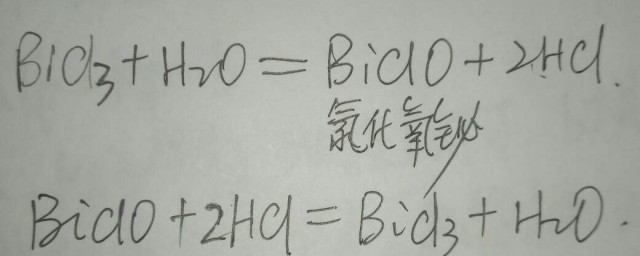 BiCl₃+H₂O=BiClO+2HCl.
氯化氧铋
BiClO+2HCl=BiCl₃+H₂O.